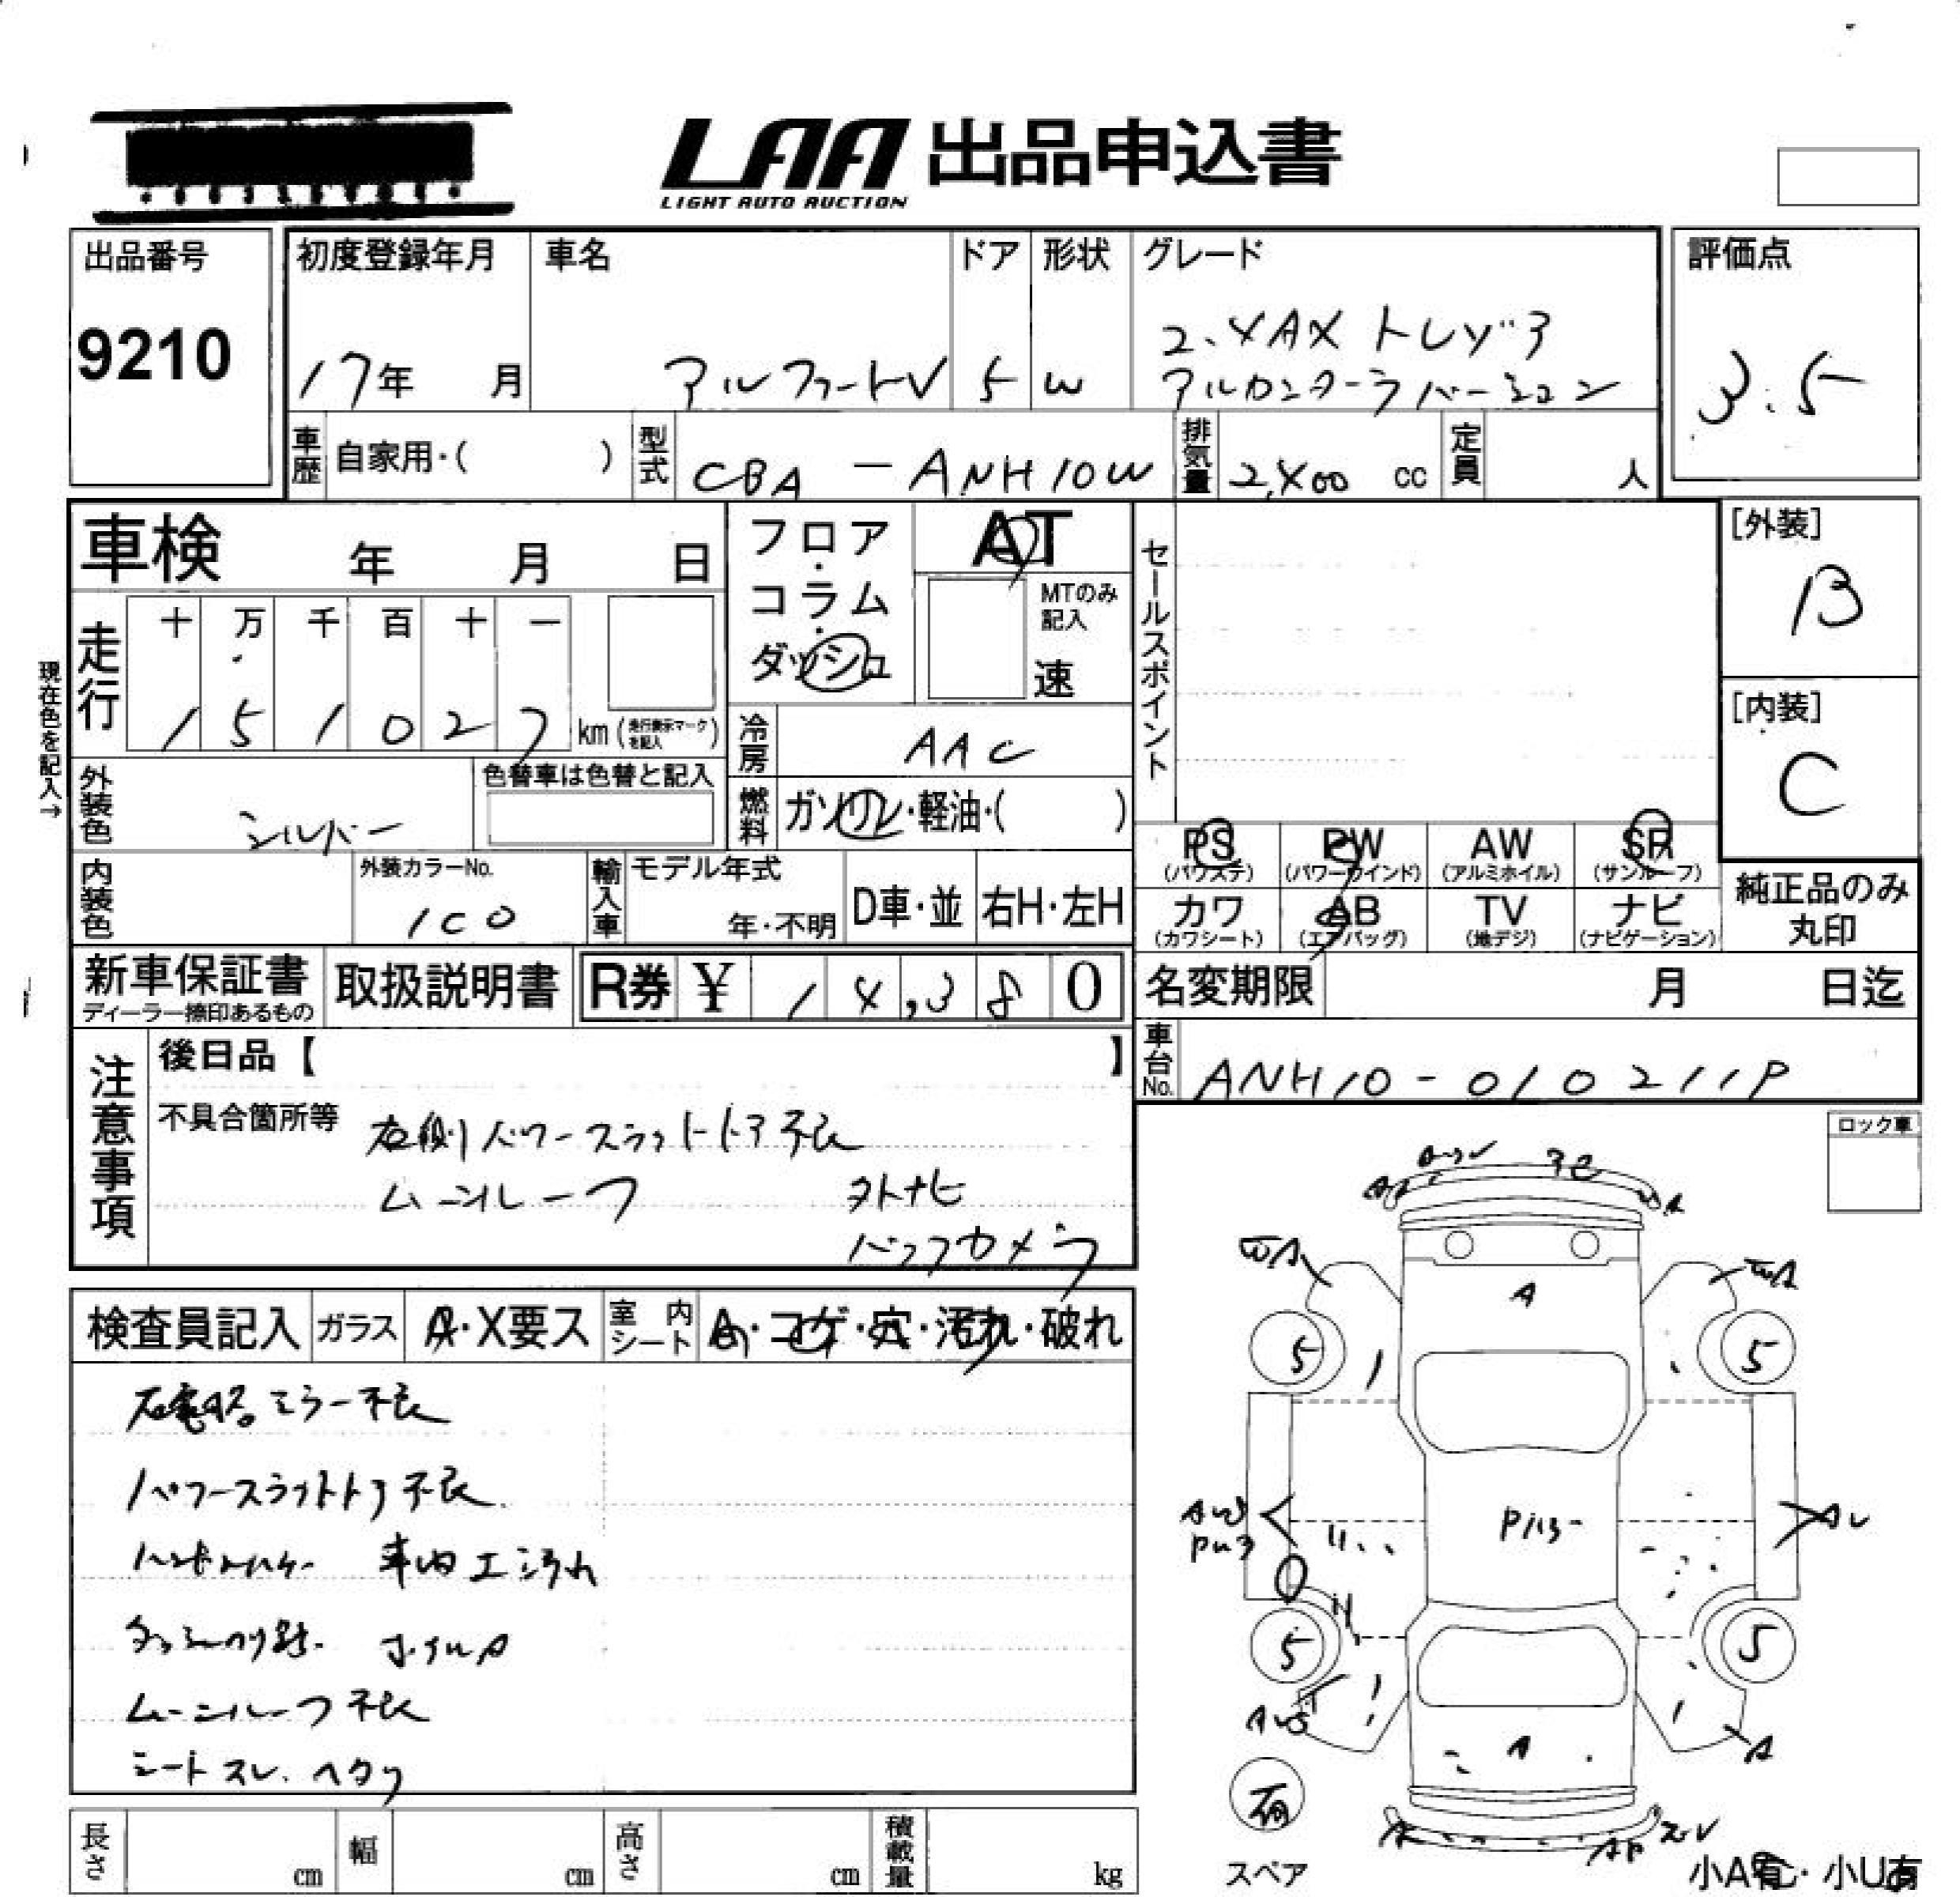 LAA 出品申込書
LIGHT AUTO AUCTION
出品番号
9210
初度登録年月
17年 月
車名
アルファードV
ドア
5
形状
W
グレード
2.4AX トレゾア
アルカンターラバージョン
評価点
3.5
車歴 自家用・( )
型式 CBA - ANH10W
排気量 2,400 cc
定員 人
車検 年 月 日
フロア・コラム・ダッシュ
AT
MTのみ記入
速
セールスポイント
[外装]
B
[内装]
C
現在色を記入→
走行
十 万 千 百 十 一
1 5 1 0 2 7 km (走行表示マークを記入)
冷房 AAC
外装色 シルバー
色替車は色替と記入
燃料 ガソリン・軽油・( )
PS (パワステ)
PW (パワーウインド)
AW (アルミホイル)
SR (サンルーフ)
内装色
外装カラーNo.
1C0
輸入車
モデル年式
年・不明
D車・並
右H・左H
カワ (カワシート)
AB (エアバッグ)
TV (地デジ)
ナビ (ナビゲーション)
純正品のみ丸印
新車保証書
ディーラー捺印あるもの
取扱説明書
R券 ¥ 1 4,3 8 0
名変期限 月 日迄
車台No. ANH10-010211P
注意事項
後日品【 】
不具合箇所等
右側パワースライドドア不良
ムーンルーフ 外ナビ
バックカメラ
ロック車
検査員記入
ガラス A・X要ス
室内シート A・コゲ・穴・汚れ・破れ
右電格ミラー不良
パワースライドドア不良
車内エ汚れ
ホイルA
ムーンルーフ不良
シートスレ、ヘタリ
A
5
5
A
5
5
A
A
有
スペア
小A有・小U有
長さ cm
幅 cm
高さ cm
積載量 kg